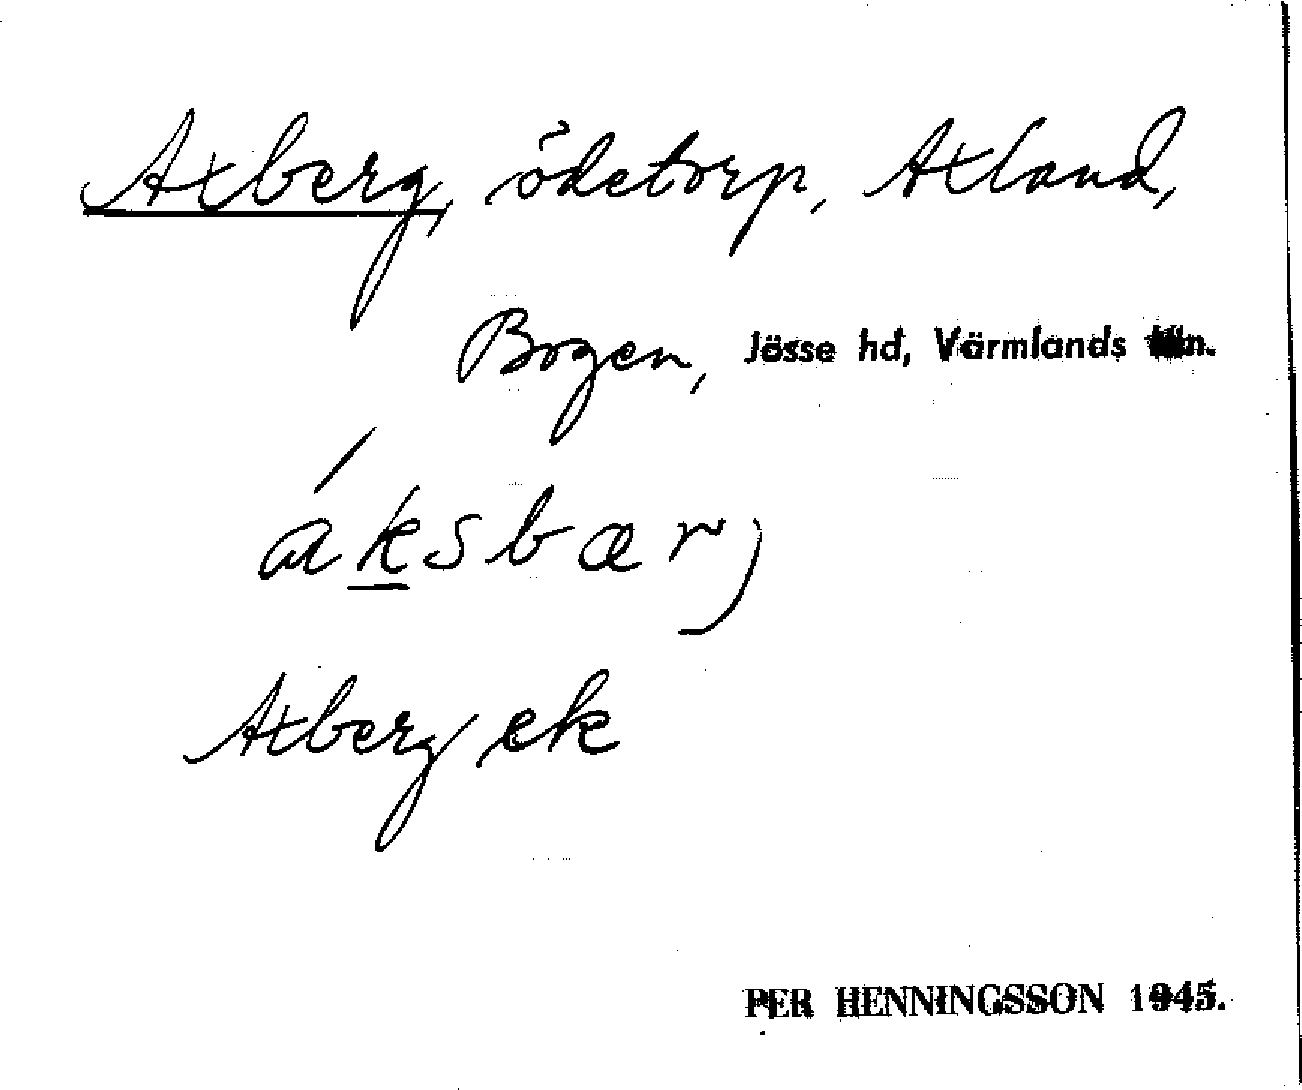 Axberg, ödetorp, Axland,
Bogen, Jösse hd, Värmlands län.
áksbær,
Axberg ek
PER HENNINGSSON 1945.